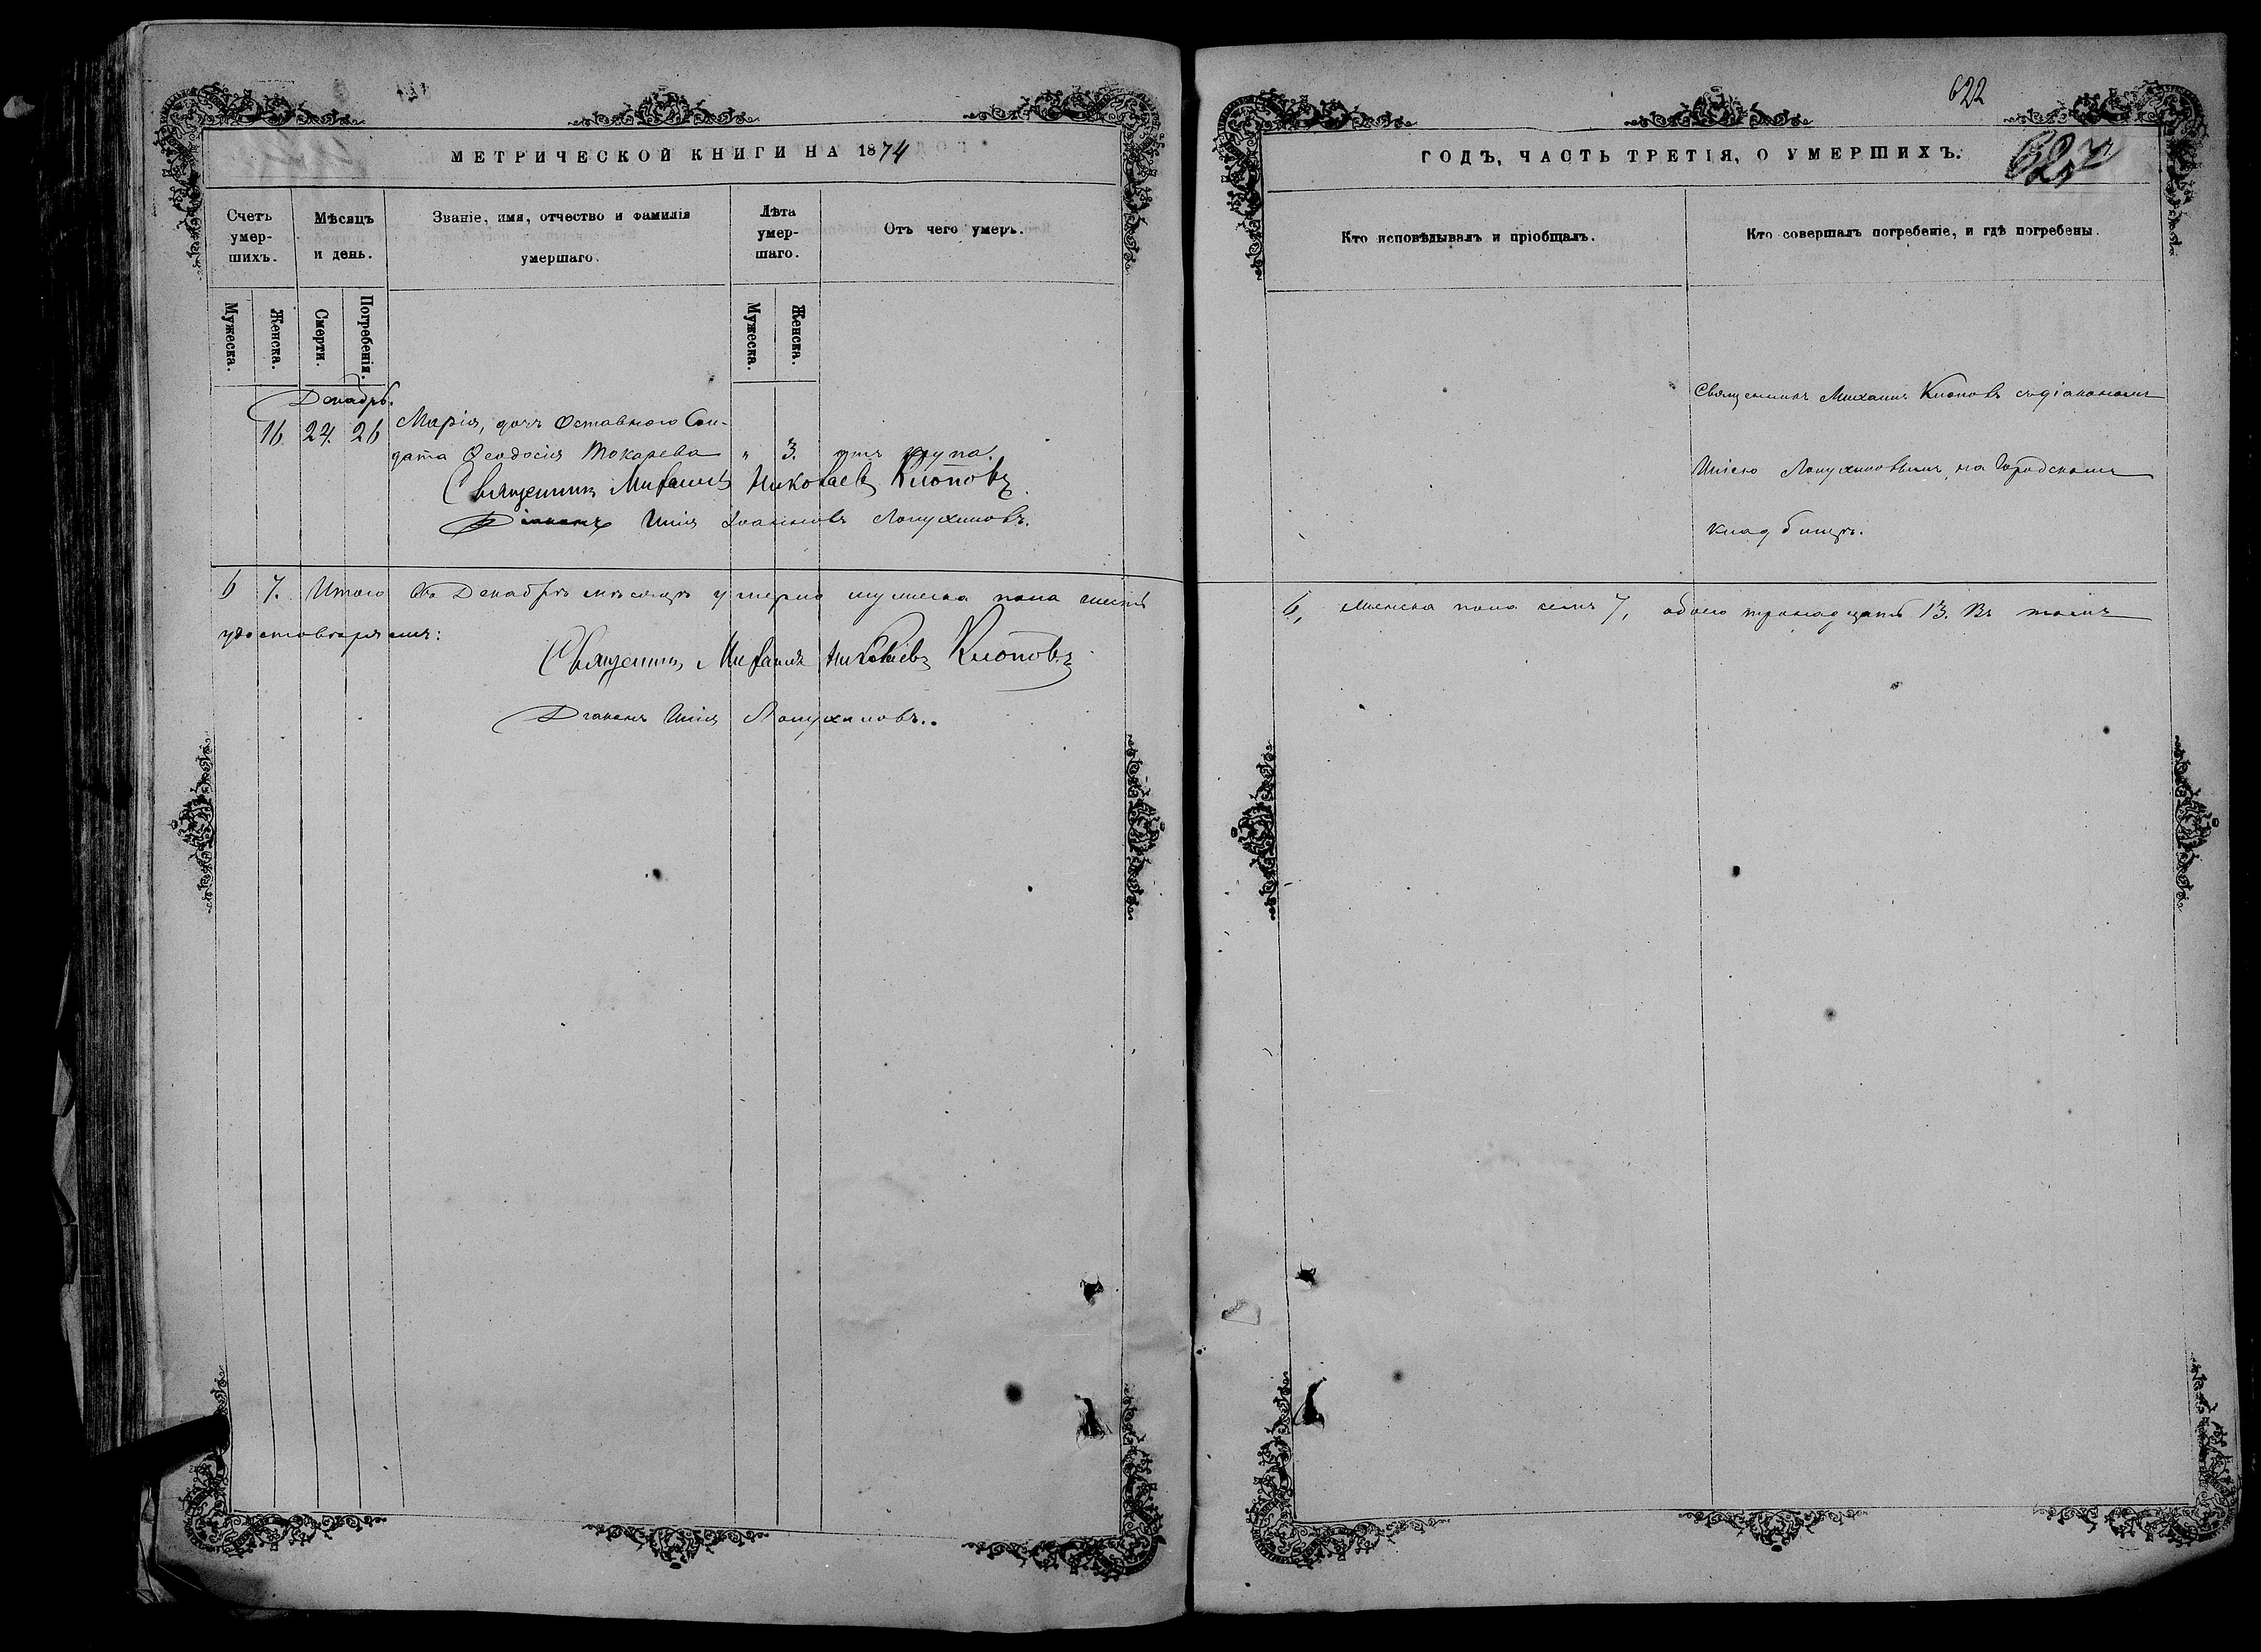 МЕТРИЧЕСКОЙ КНИГИ НА 1874
Счетъ умер-шихъ.
Мѣсяцъ и день.
Званіе, имя, отчество и фамилія умершаго.
Лѣта умер-шаго.
Отъ чего умеръ.
Мужеска.
Женска.
Смерти.
Погребенія.
Мужеска.
Женска.
Декабрь.
16 24. 26 Марія, дочь Отставнаго Сол-
дата Ѳеодосія Токарева „ 3. отъ крупа.
Священникъ Михаилъ Николаевъ Клоповъ
Діаконъ Илія Іоанновъ Лопухиновъ.
6 7. Итого въ Декабрѣ мѣсяцѣ умерло мужеска пола шесть
удостовѣряемъ:
Священникъ Михаилъ Николаевъ Клоповъ
Діаконъ Илія Лопухиновъ.
622
ГОДЪ, ЧАСТЬ ТРЕТІЯ, О УМЕРШИХЪ.
Кто исповѣдывалъ и пріобщалъ.
Кто совершалъ погребеніе, и гдѣ погребены.
Священникъ Михаилъ Клоповъ съ діакономъ
Иліею Лопухиновымъ, на Городскомъ
кладбищѣ.
6, женска пола семь 7, обоего тринадцать 13. Въ томъ